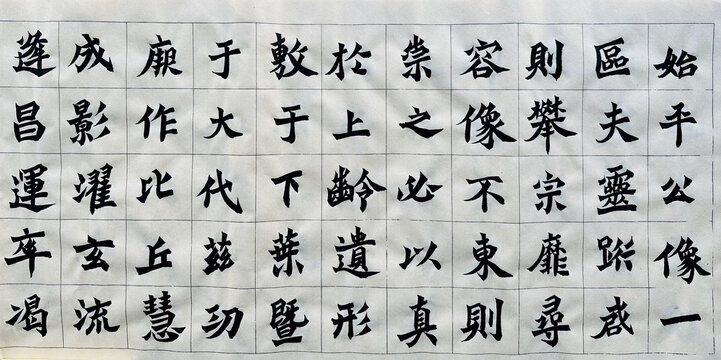 始平公像一
區夫靈
則攀宗靡尋
容像不東則
崇之必以真
於上齡遺形
敷于下葉暨
于大代茲功
厥作比丘慧
成影濯玄流
昌運率渴